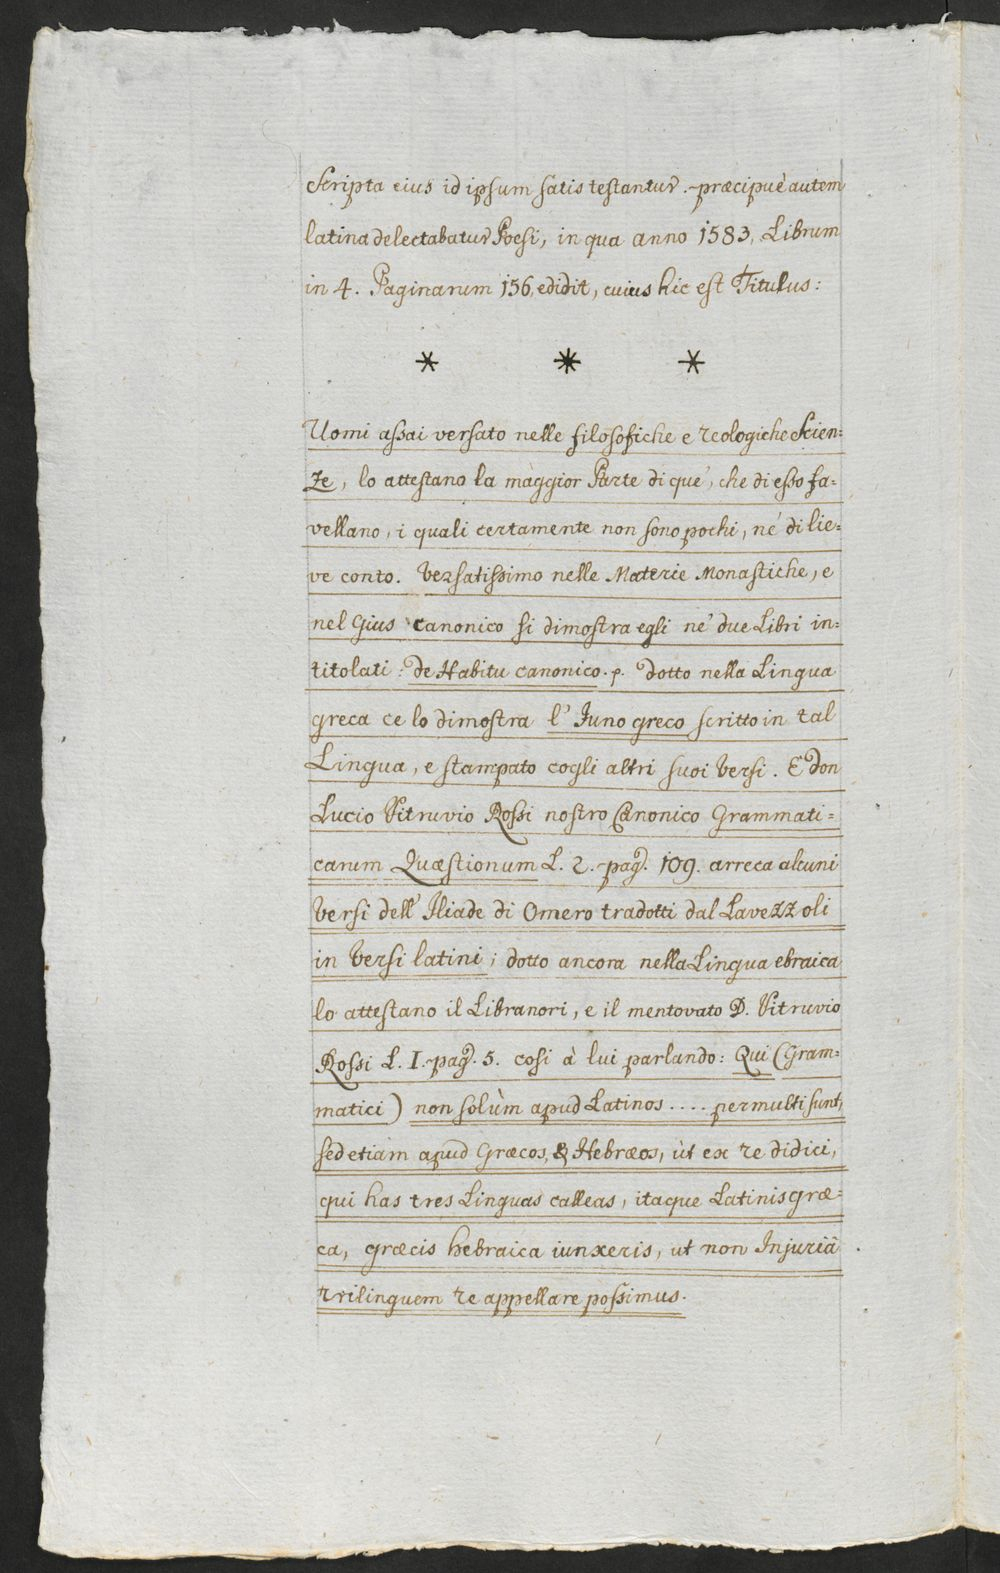 Scripta eius id ipsum satis testantur. præcipuè autem
latina delectabatur Poesi, in qua anno 1583. Librum
in 4. Paginarum 156. edidit, cuius hic est Titulus:
* * *
Uomi assai versato nelle filosofiche e teologiche Scien=
ze, lo attestano la maggior Parte di que', che di esso fa=
vellano, i quali certamente non sono pochi, né di lie=
ve conto. Versatissimo nelle Materie Monastiche, e
nel Gius canonico si dimostra egli ne' due Libri in=
titolati: De Habitu canonico. p. Dotto nella Lingua
greca ce lo dimostra l' Juno greco scritto in tal
Lingua, e stampato cogli altri suoi Versi. E don
Lucio Vitruvio Rossi nostro Canonico Grammati=
carum Quæstionum L. 2. pag. 109. arreca alcuni
Versi dell' Iliade di Omero tradotti dal Lavezzoli
in Versi latini; dotto ancora nella Lingua ebraica
lo attestano il Libranori, e il mentovato D. Vitruvio
Rossi L. I. pag. 5. cosi à lui parlando: Qui (Gram=
matici) non solùm apud Latinos .... permulti sunt,
sed etiàm apud Græcos, & Hebræos, ùt ex te didici,
qui has tres Linguas calleas, itaque Latinis græ=
ca, græcis hebraica iunxeris, ut non Injuriâ
trilinguem te appellare possimus.